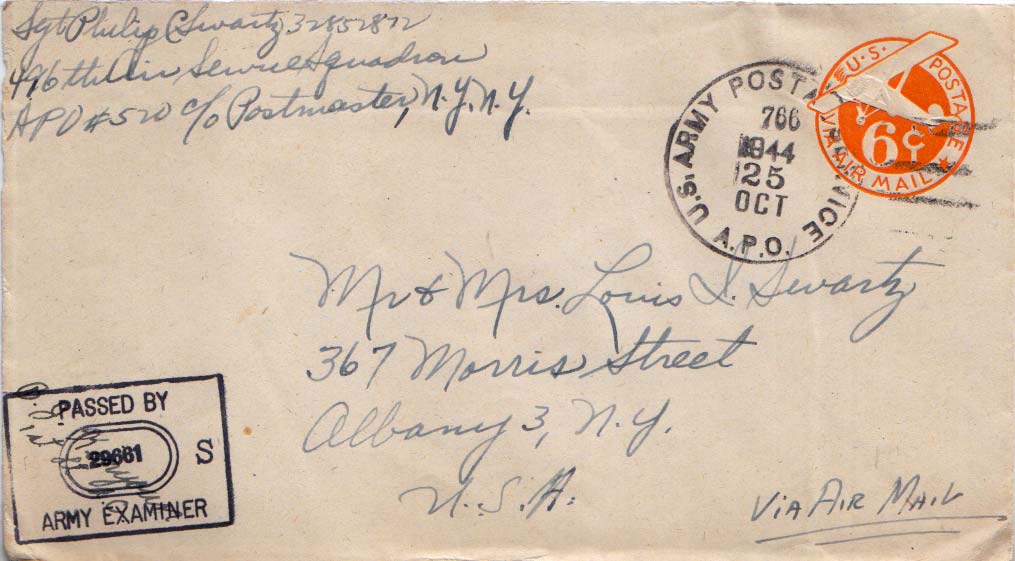 Sgt Philip C Swartz 32852872
496th Air Service Squadron
APO #520 c/o Postmaster, N.Y. N.Y.
U.S. ARMY POSTAL SERVICE
A.P.O.
766
1944
25
OCT
U.S. POSTAGE
6¢
VIA AIR MAIL
Mr & Mrs. Louis I. Swartz
367 Morris Street
Albany 3, N.Y.
U.S.A.
VIA AIR MAIL
PASSED BY
29661 S
ARMY EXAMINER